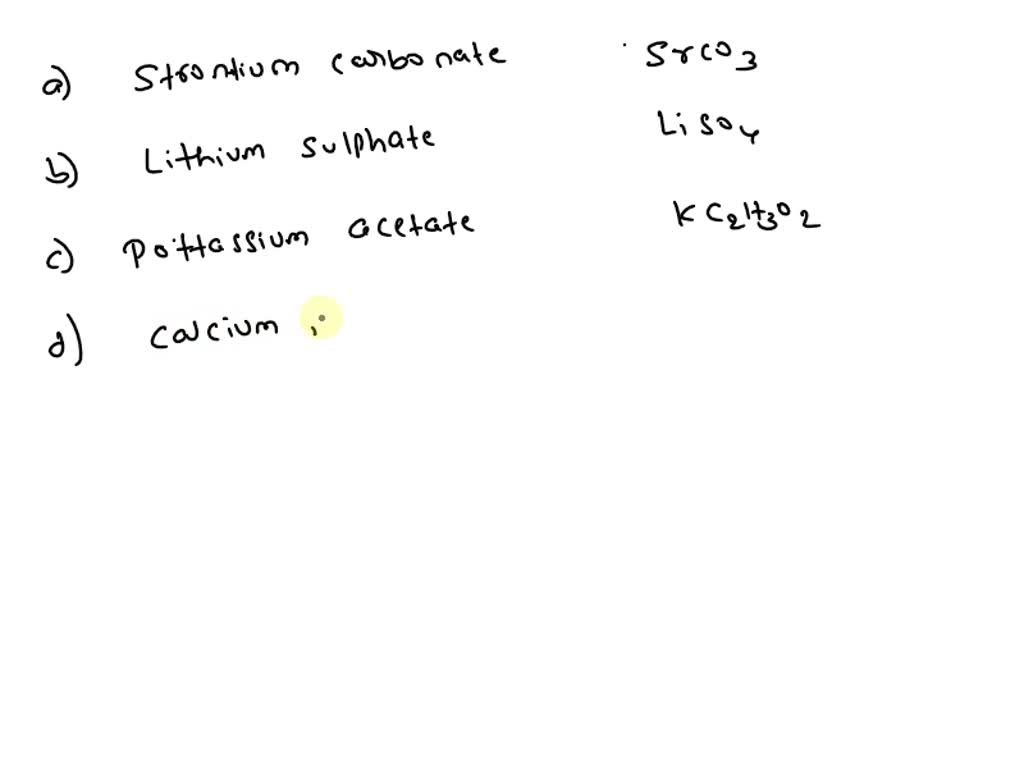 a) Strontium carbonate SrCO3
b) Lithium sulphate LiSO4
c) Pottassium acetate KC2H3O2
d) Calcium